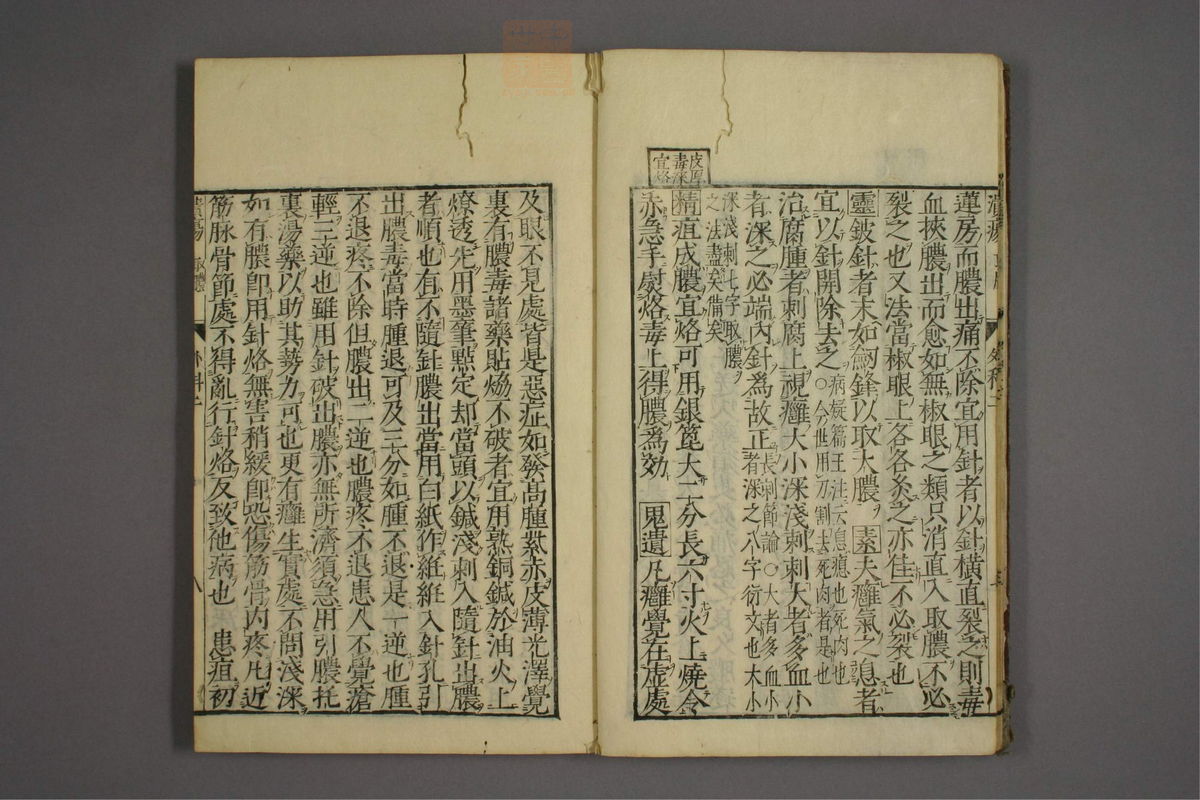 蓮房而膿出痛不除宜用針者以針橫直裂之則毒
血挾膿出而愈如無椒眼之類只消直入取膿不必
裂之也又法當椒眼上各各灸之亦佳不必裂也
靈鈹針者末如劒鋒以取大膿 素夫癰氣之息者
宜以針開除去之○病候篇王注云息瘜也死肉也
今世用刀割去死肉者是也
治腐腫者刺腐上視癰大小深淺刺刺大者多血小
者深之必端內針爲故正長刺節論○大者多血小
者深之八字衍文也大小
深淺刺七字取膿
之法盡矣備矣
皮厚
毒深
宜烙
精疽成膿宜烙可用銀篦大二分長六寸火上燒令
赤急手熨烙毒上得膿爲効 鬼遺凡癰覺在虛處
及眼不見處皆是惡症如發高腫紫赤皮薄光澤覺
裏有膿毒諸藥貼焮不破者宜用熟銅鍼於油火上
燎透先用墨筆點定却當頭以鍼淺刺入隨針出膿
者順也有不隨針膿出當用白紙作紝紝入針孔引
出膿毒當時腫退可及三分如腫不退是一逆也腫
不退疼不除但膿出二逆也膿疼不退患人不覺瘡
輕三逆也雖用針破出膿亦無所濟須急用引膿托
裏湯藥以助其勢力可也更有癰生實處不問淺深
如有膿卽用針烙無害稍緩卽恐傷筋骨內疼凡近
筋脉骨節處不得亂行針烙反致他病也 患疽初